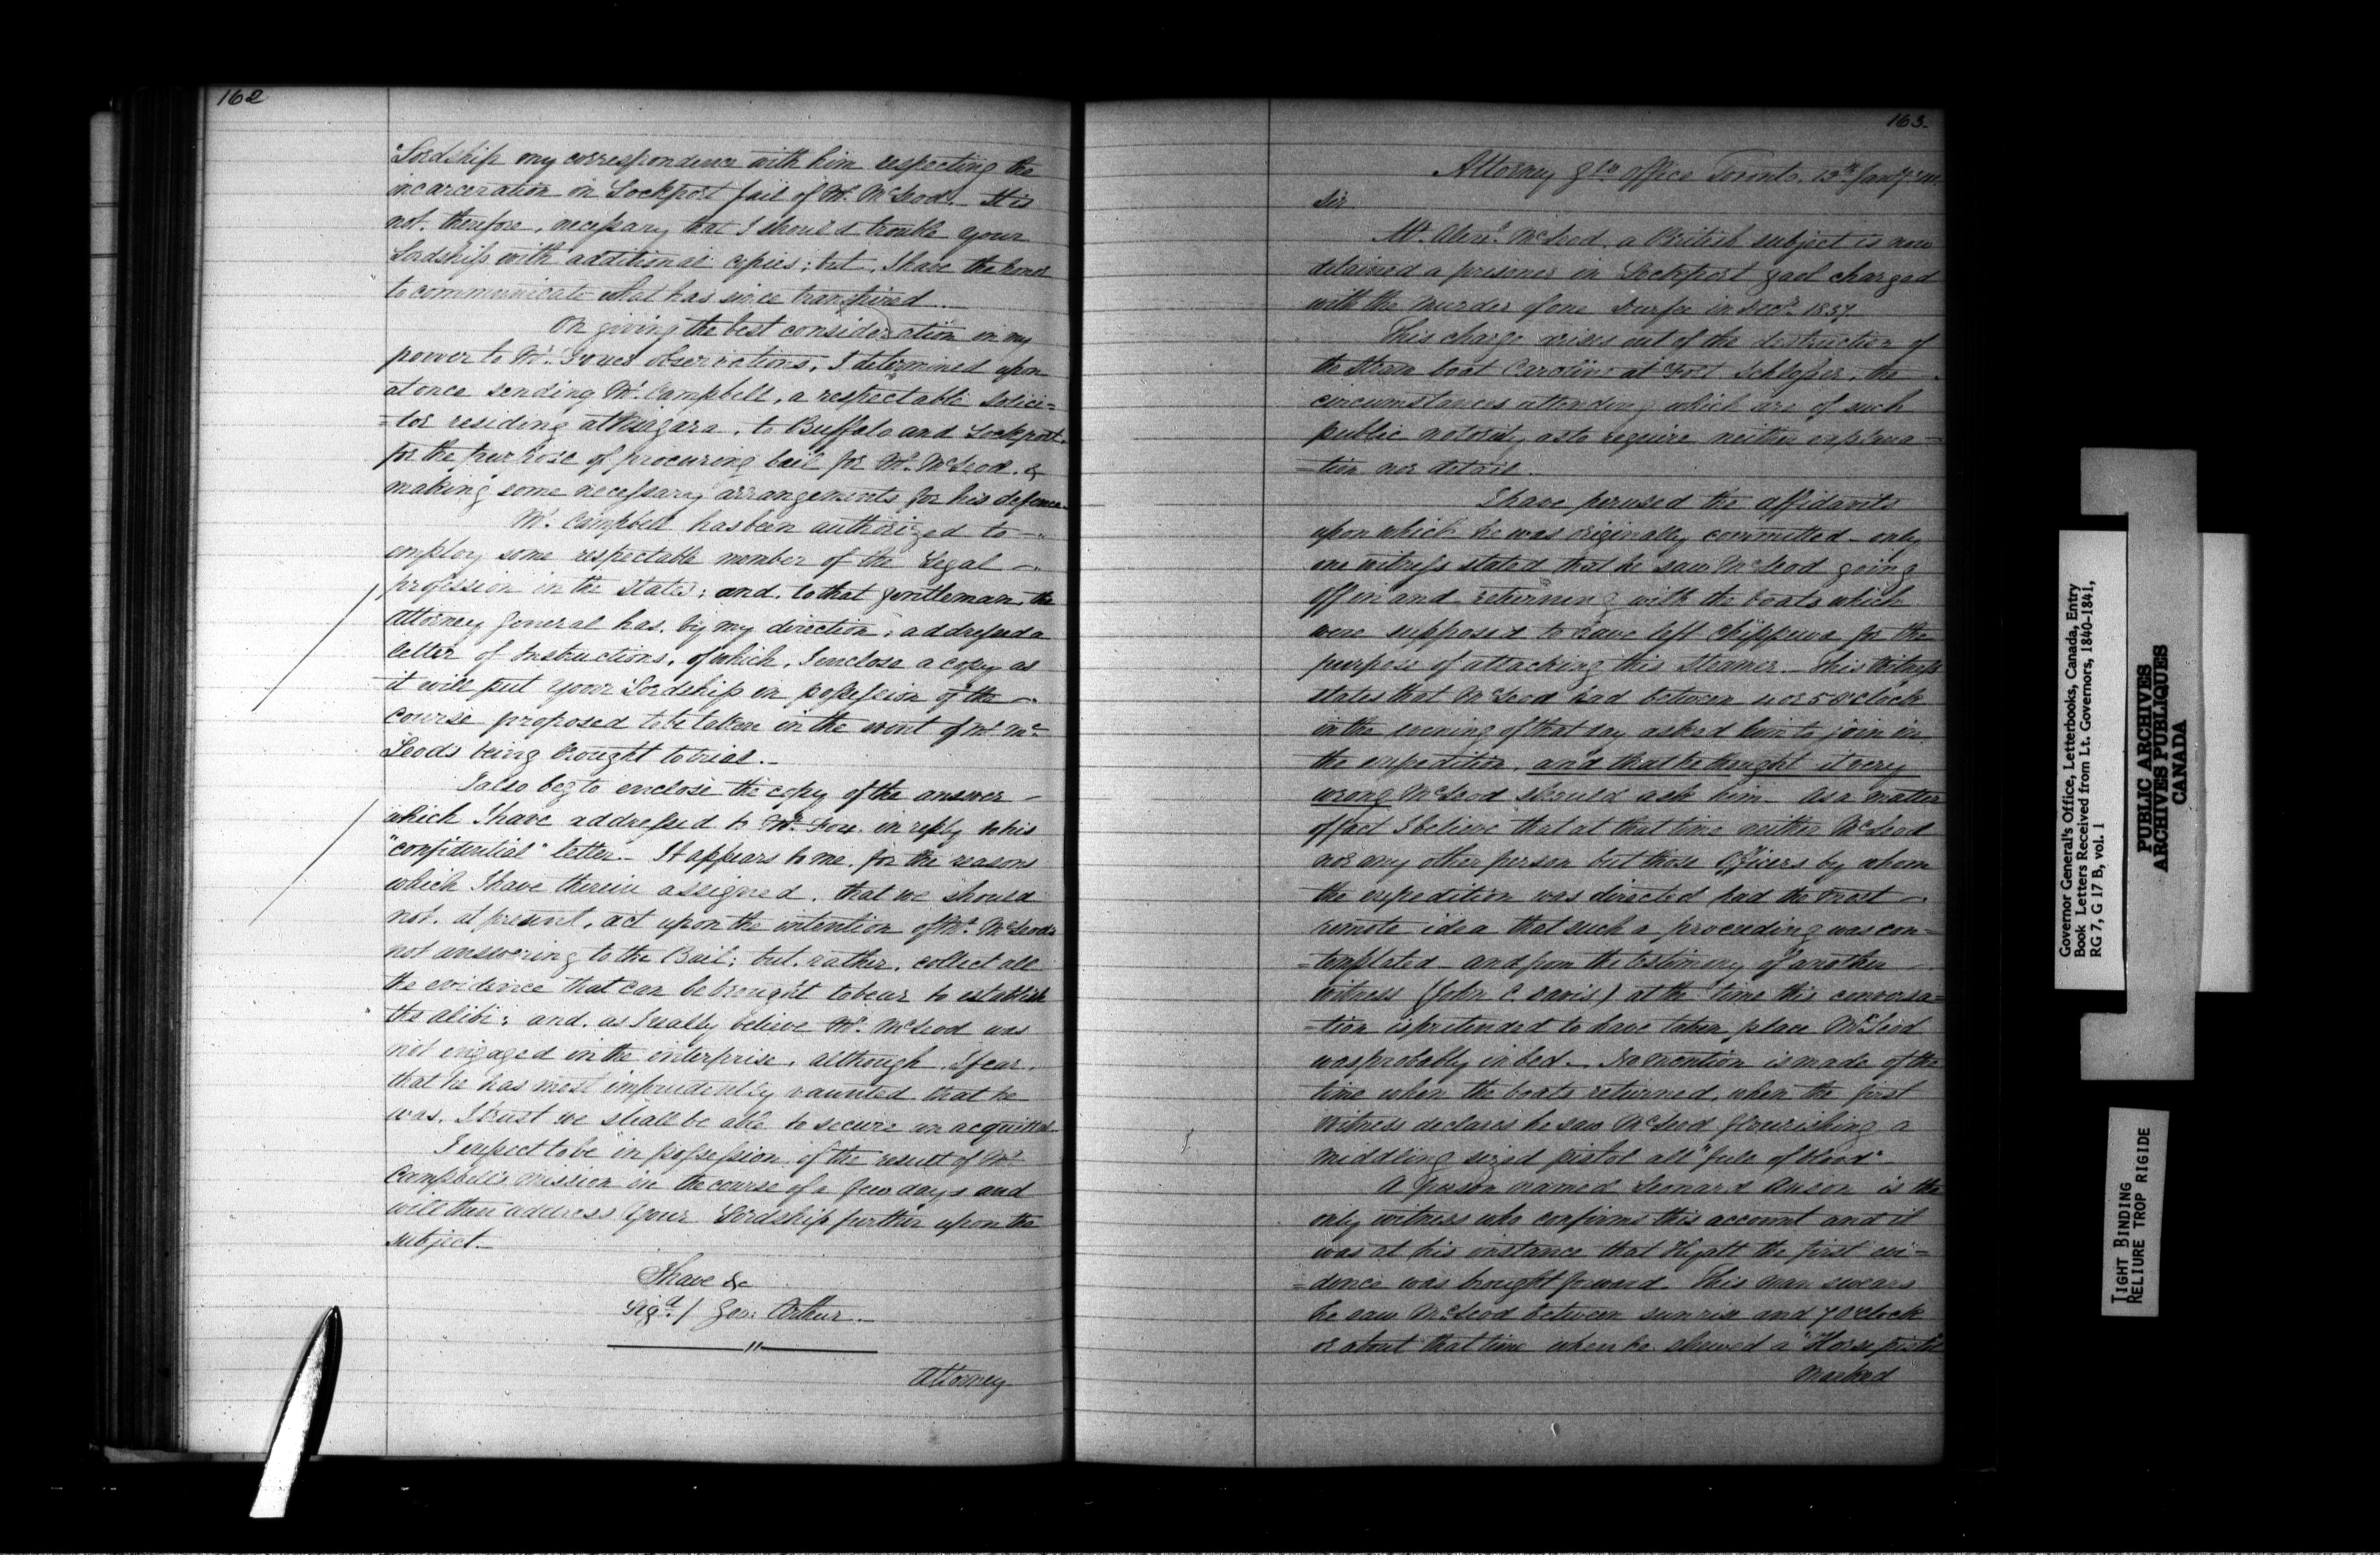 162
Lordship my correspondence with him respecting the
incarceration in Lockport Jail of Mr. McLeod. It is
not, therefore, necessary that I should trouble your
Lordship with additional copies; but, I have the honor
to communicate what has since transpired
On giving the best consideration in my
power to Mr. Foxes observations, I determined upon
at once sending Mr. Campbell, a respectable Solici=
=tor residing at Niagara, to Buffalo and Lockport
for the purpose of procuring bail for Mr. McLeod, &
making some necessary arrangements for his defence
Mr. Campbell has been authorized to
employ some respectable member of the Legal
profession in the States; and, to that gentleman, the
Attorney General has, by my direction, addressed a
letter of Instructions, of which, I enclose a copy as
it will put your Lordship in possession of the
course proposed to be taken in the event of Mr. Mc
Leods being brought to trial.
I also beg to enclose the copy of the answer
which I have addressed to Mr. Fox in reply to his
"confidential" letter. It appears to me, for the reasons
which I have therein assigned, that we should
not, at present, act upon the intention of Mr. McLeods
not answering to the Bail; but, rather, collect all
the evidence that can be brought to bear to establish
the alibi; and, as I really believe Mr. McLeod was
not engaged in the enterprise, although, I fear,
that he has most imprudently vaunted that he
was, I trust we shall be able to secure an acquittal
I expect to be in possession of the result of Mr.
Campbell's mission in the course of a few days and
will then address Your Lordship further upon the
subject.
I have &c
Sigd. / Geo: Arthur
Attorney
163.
Attorney Gls. Office Toronto. Jany.
Sir
Mr. Alexr. McLeod, a British subject is now
detained a prisoner in Lockport gaol charged
with the murder of one Durfee in Decr. 1837
This charge arises out of the destruction of
the Steam boat Caroline at Fort Schlosser, the
circumstances attending which are of such
public notoriety as to require neither explana=
=tion nor detail.
I have perused the affidavits
upon which he was originally committed - only
one witness stated that he saw McLeod going
off in and returning with the boats which
were supposed to have left Chippewa for the
purpose of attacking this Steamer. This Witness
states that McLeod had between 4 or 5 O'clock
in the evening of that day asked him to join in
the expedition, and that he thought it very
wrong McLeod should ask him. As a matter
of fact I believe that at that time neither McLeod
nor any other person but those Officers by whom
the expedition was directed had the most
remote idea that such a proceeding was con=
=templated - and from the testimony of another
witness (John C Davis) at the time this conversa=
=tion is pretended to have taken place McLeod
was probably in bed. No mention is made of the
time when the boats returned, when the first
Witness declares he saw McLeod flourishing a
middling sized pistol all "full of blood"
A person named Leonard Anson is the
only witness who confirms this account and it
was at his instance that Hyatt the first evi=
=dence was brought forward. This man swears
he saw McLeod between sunrise and 7 O'clock
or about that time when he shewed a "Horse pistol
Marked
Governor General's Office, Letterbooks, Canada, Entry
Book Letters Received from Lt. Governors, 1840-1841,
RG 7, G 17 B, vol. 1
PUBLIC ARCHIVES
ARCHIVES PUBLIQUES
CANADA
TIGHT BINDING
RELIURE TROP RIGIDE